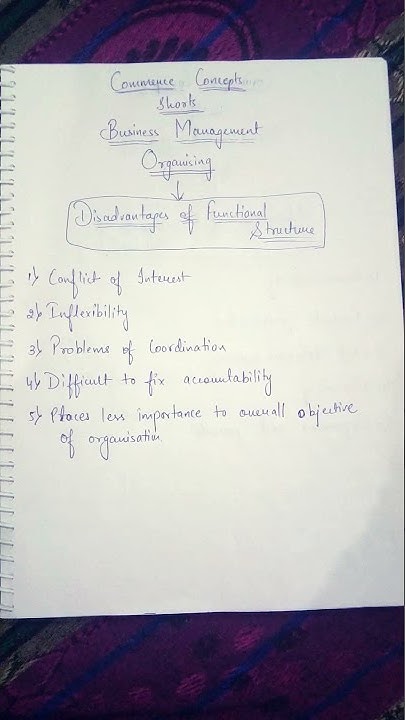 Commerce Concepts
Shorts
Business Management
Organising
Disadvantages of Functional
Structure
1) Conflict of Interest
2) Inflexibility
3) Problems of Coordination
4) Difficult to fix accountability
5) Places less importance to overall objective
of organisation